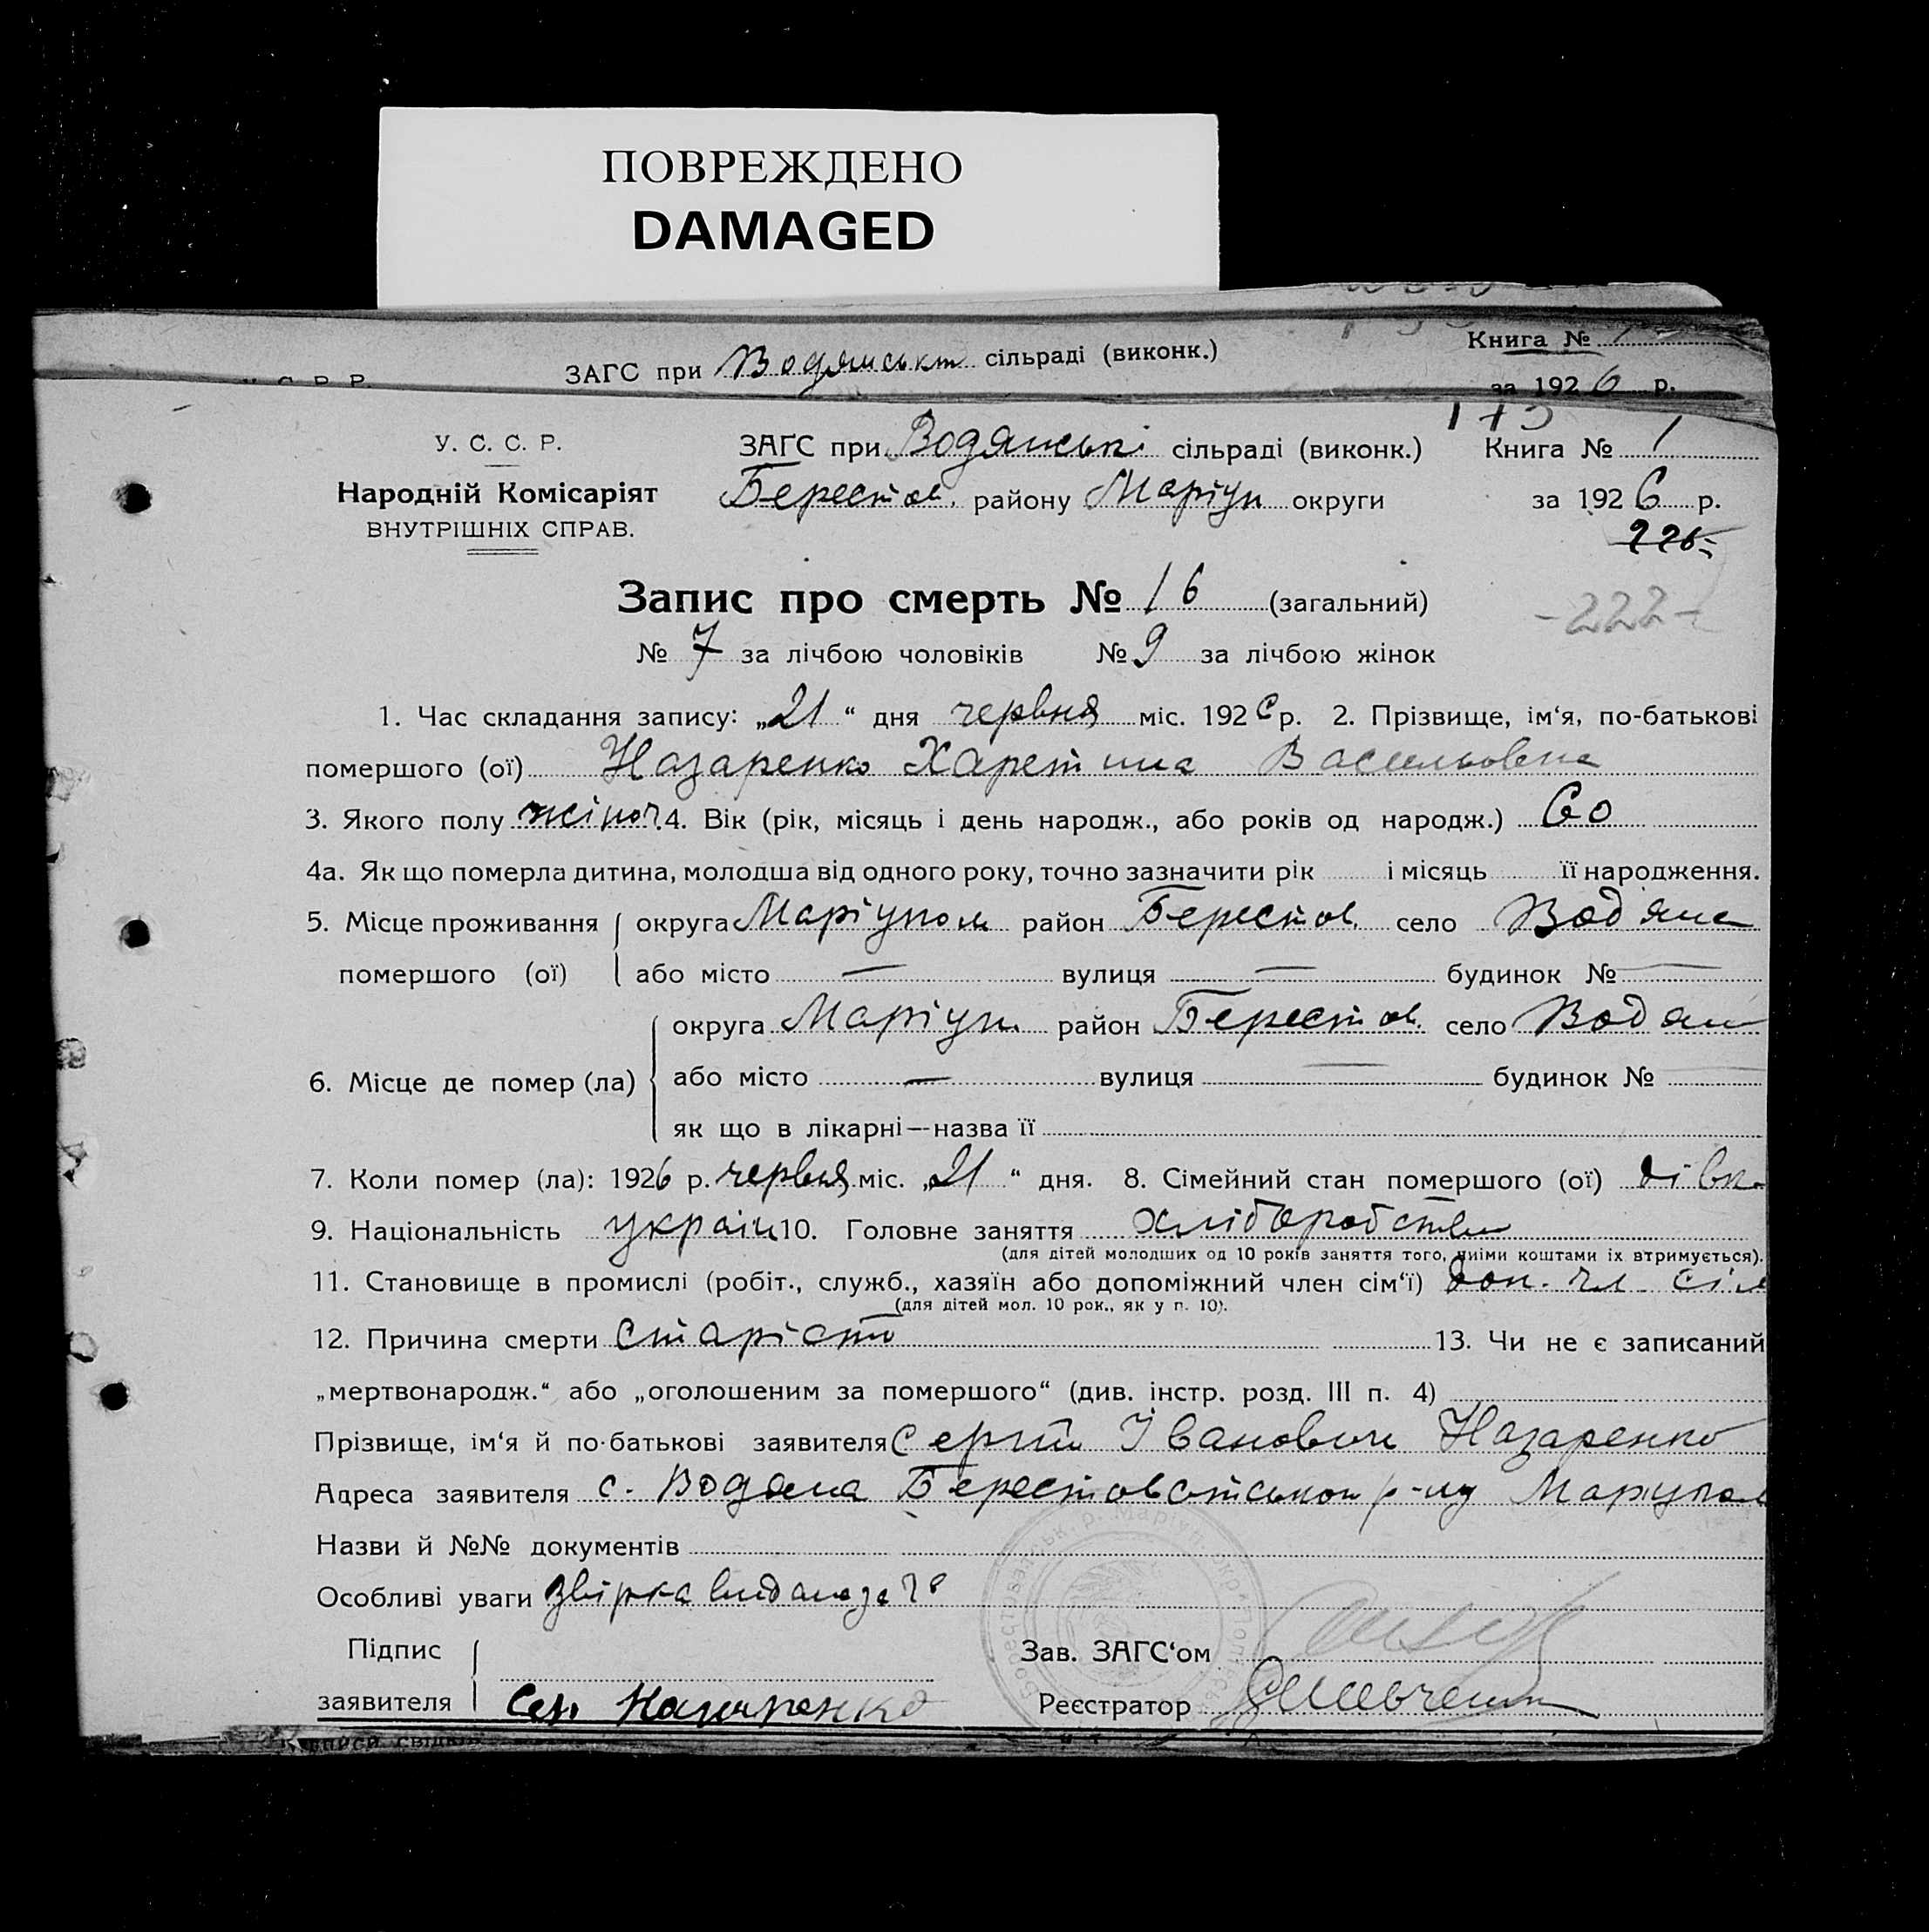 ПОВРЕЖДЕНО
DAMAGED
ЗАГС при сільраді (виконк.) Книга №
за 1926 р.
У. С. С. Р. ЗАГС при Водянські сільраді (виконк.) Книга № 1
Народній Комісаріят Берестов. району Маріуп округи за 1926 р.
ВНУТРІШНІХ СПРАВ.
Запис про смерть № 16 (загальний) -222-
№ 7 за лічбою чоловіків № 9 за лічбою жінок
1. Час складання запису: „21“ дня червня міс. 1926 р. 2. Прізвище, ім‘я, по-батькові
помершого (ої) Назаренко Харетина Васильовна
3. Якого полу жіноч. 4. Вік (рік, місяць і день народж., або років од народж.) 60
4а. Як що померла дитина, молодша від одного року, точно зазначити рік і місяць її народження.
5. Місце проживання округа Маріупол район Берестов. село Водяна
помершого (ої) або місто — вулиця — будинок № —
округа Маріуп. район Берестов. село Водян
6. Місце де помер (ла) або місто — вулиця — будинок № —
як що в лікарні—назва її
7. Коли помер (ла): 1926 р. червня міс. „21“ дня. 8. Сімейний стан помершого (ої)
9. Національність україн 10. Головне заняття хліборобство
(для дітей молодших од 10 років заняття того, чиїми коштами їх втримується).
11. Становище в промислі (робіт., служб., хазяїн або допоміжний член сім‘ї) доп. чл. сім
(для дітей мол. 10 рок., як у п. 10).
12. Причина смерти старість 13. Чи не є записаний
„мертвонародж.“ або „оголошеним за помершого“ (див. інстр. розд. III п. 4)
Прізвище, ім‘я й по-батькові заявителя Сергій Іванович Назаренко
Адреса заявителя с. Водяна р-ну Маріупол
Назви й №№ документів
Особливі уваги
Підпис Зав. ЗАГС‘ом
заявителя Сер. Назаренко Реєстратор Шевченко